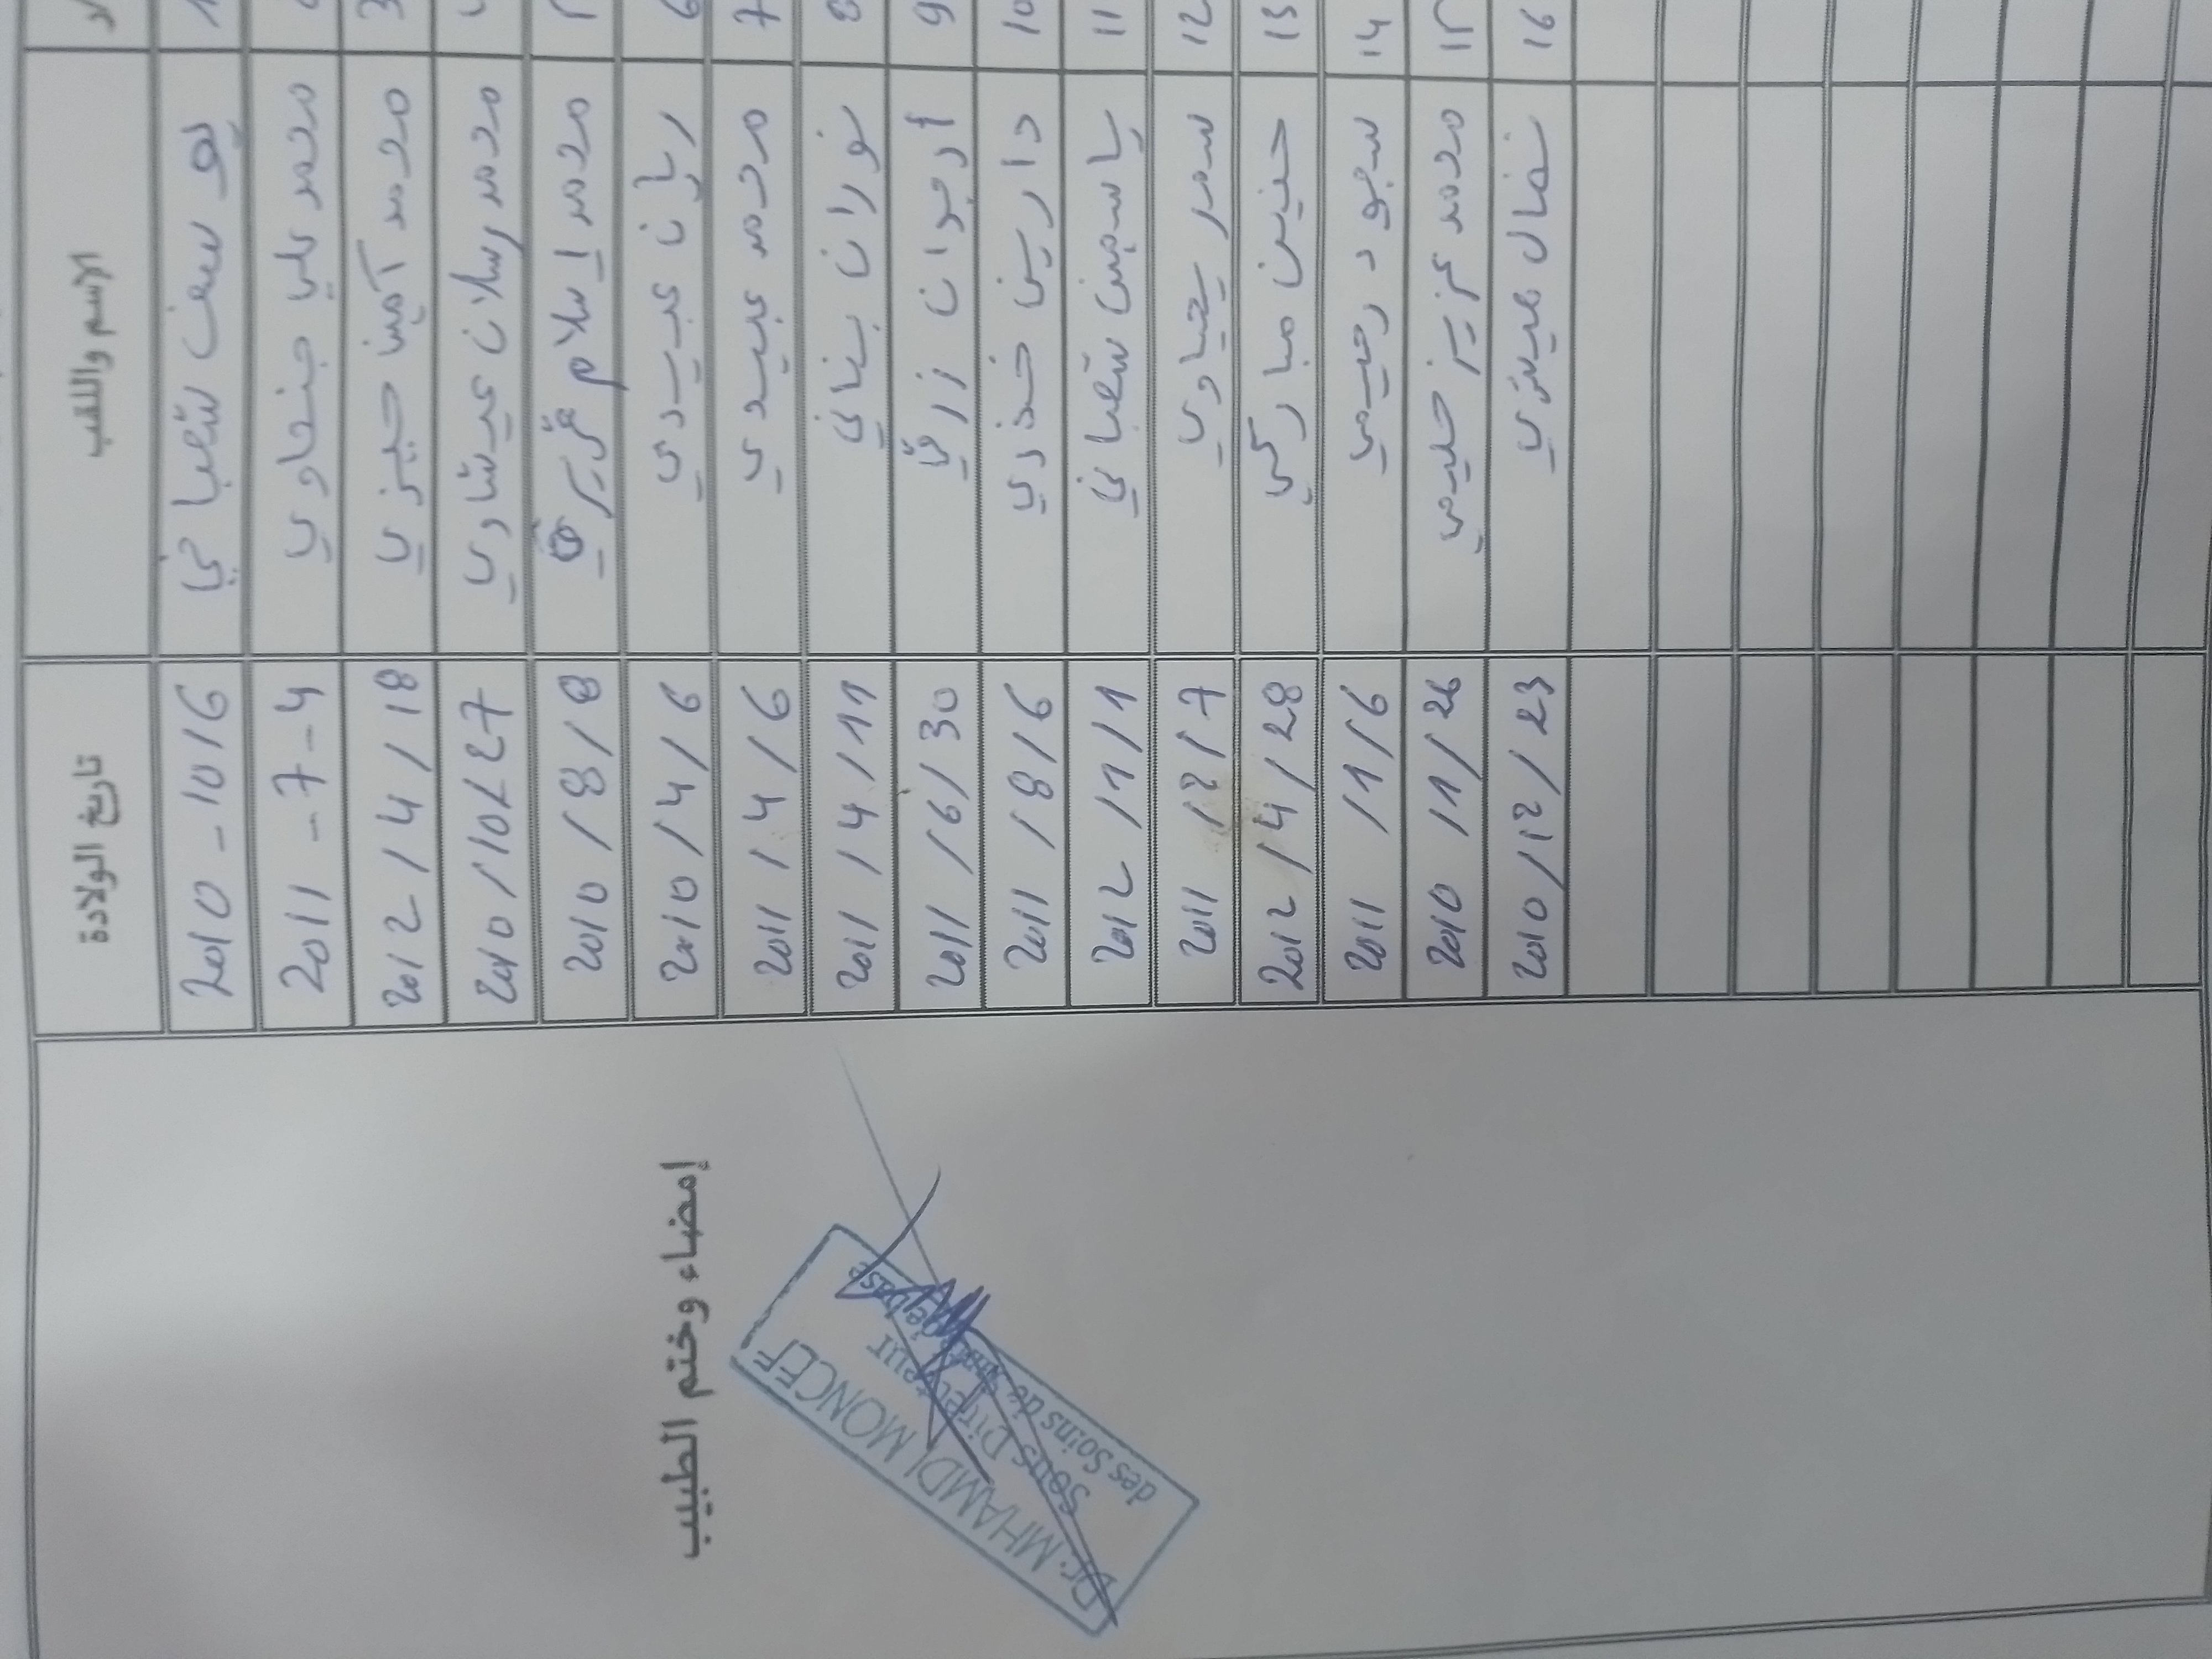 الاسم واللقب تاريخ الولادة
1 يوسف شعباني 2010-10/6
محمد علي جنحاوي 2011-7-4
3 محمد أمين حيزي 2012/4/18
محمد رسلان عيشاوي 2010/10/27
محمد اسلام 2010/8/8
6 ريان عبيدي 2010/4/6
7 محمد عبيدي 2011/4/6
8 نوران بناني 2011/4/11
9 أرجوان زرقي 2011/6/30
10 دارين خذري 2011/8/6
11 ياسمين شعباني 2012/1/1
12 سمر يحياوي 2011/2/7
13 حنين مباركي 2012/4/28
14 سجود رحيمي 2011/1/6
15 محمد عزيز حليمي 2010 11/26
16 نضال 2010/12/23
إمضاء وختم الطبيب
Dr. MHAMDI MONCEF
Sous Directeur
des Soins de Santé de base